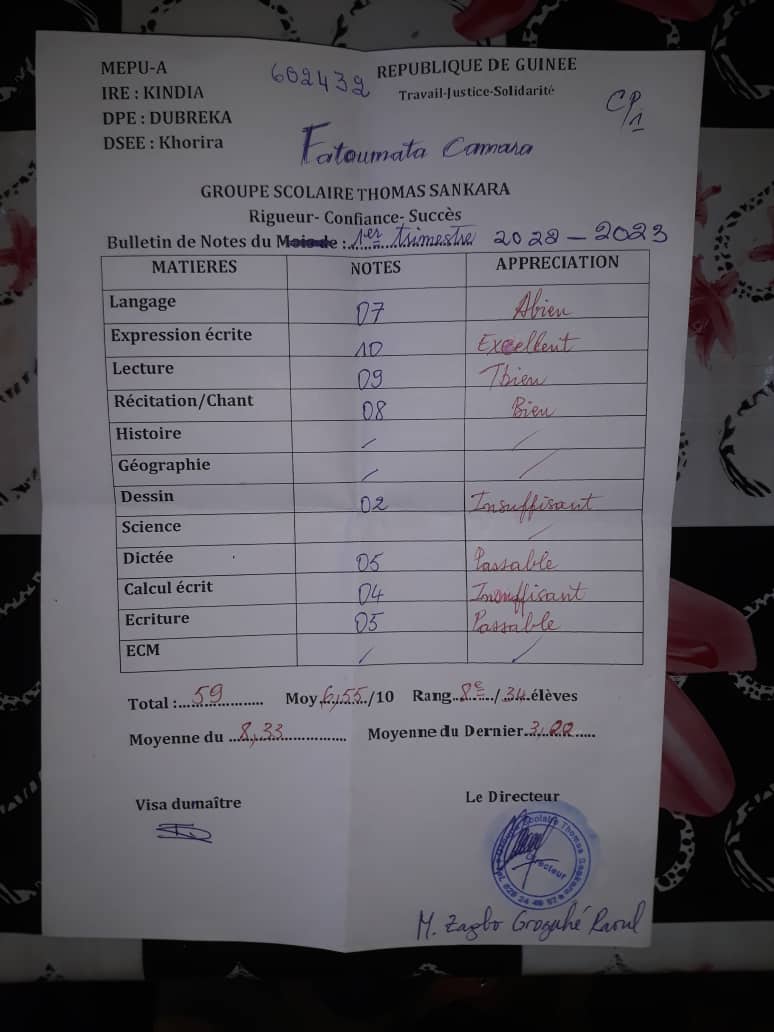 MEPU-A
602432
REPUBLIQUE DE GUINEE
IRE : KINDIA
Travail-Justice-Solidarité
CP/1
DPE : DUBREKA
DSEE : Khorira
Fatoumata Camara
GROUPE SCOLAIRE THOMAS SANKARA
Rigueur- Confiance- Succès
Bulletin de Notes du Mois de : 1er trimestre 2022 - 2023
MATIERES NOTES APPRECIATION
Langage 07 Abien
Expression écrite 10 Excellent
Lecture 09 Tbien
Récitation/Chant 08 Bien
Histoire / /
Géographie / /
Dessin 02 Insuffisant
Science /
Dictée 05 Passable
Calcul écrit 04 Insuffisant
Ecriture 05 Passable
ECM / /
Total :...59... Moy...6,55.../10 Rang...8e.../...34...élèves
Moyenne du ...8,33... Moyenne du Dernier...3,22...
Visa dumaître Le Directeur
Directeur
M. Zagbo Groguhé Raoul